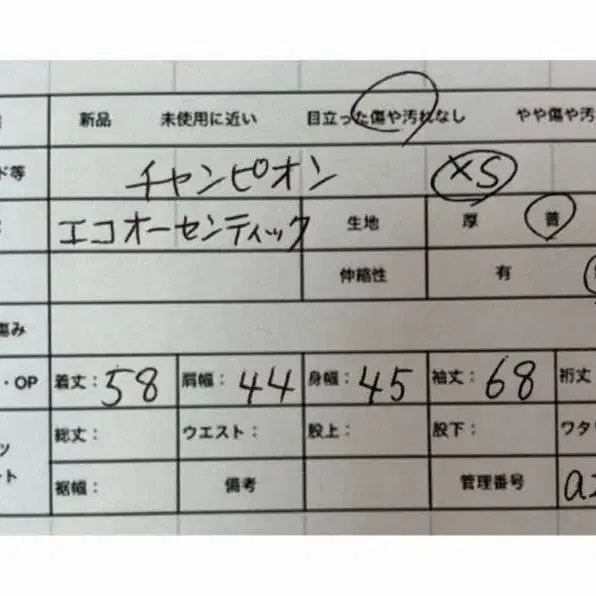 新品 未使用に近い 目立った傷や汚れなし やや傷や汚
ド等 チャンピオン XS
エコオーセンティック 生地 厚 普
伸縮性 有
傷み
・OP 着丈：58 肩幅：44 身幅：45 袖丈：68 裄丈
総丈： ウエスト： 股上： 股下： ワタ
ツ
ト
裾幅： 備考 管理番号 a